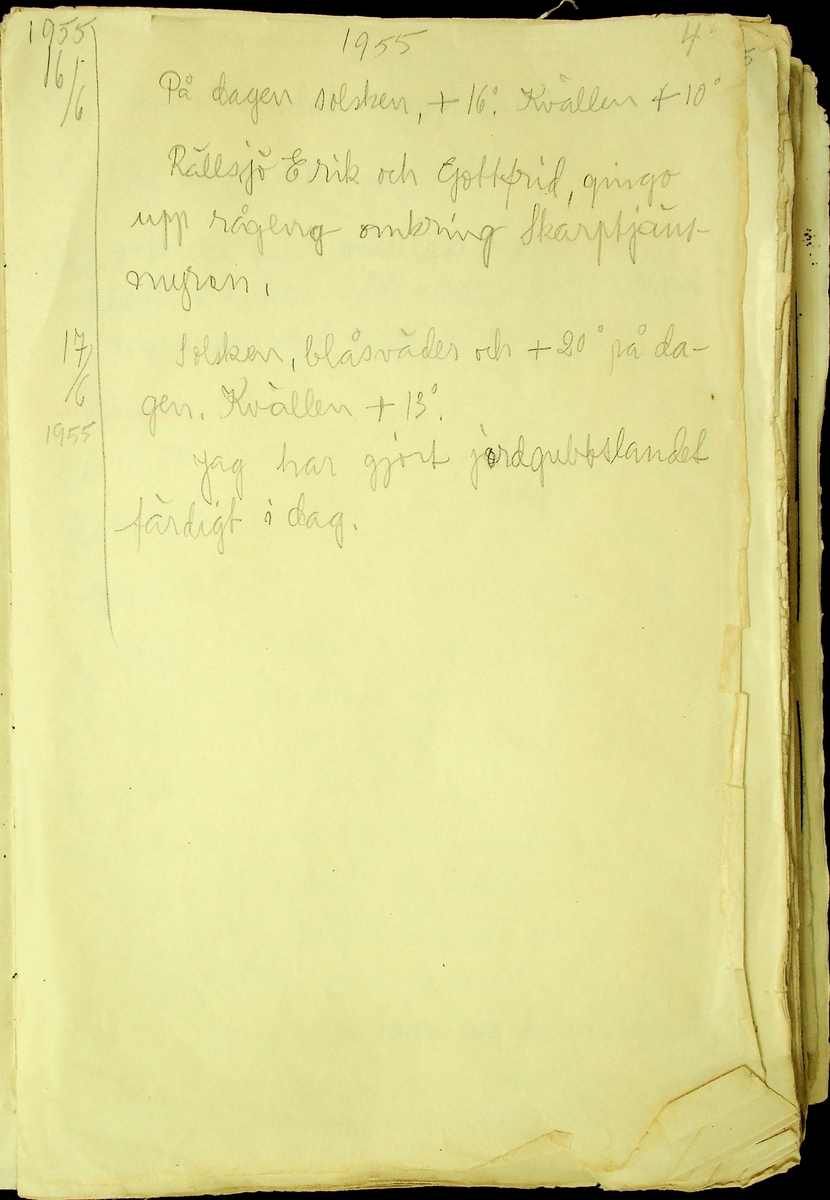 1955 1955 4
16/6 På dagen solsken, +16°. Kvällen +10°
Rällsjö Erik och Gottfrid, gingo
upp rågeng omkring Skarptjäns-
myran.
17/6 Solsken, blåsväder och +20° på da-
gen. Kvällen +13°.
1955
Jag har gjort jordgubbslandet
färdigt i dag.